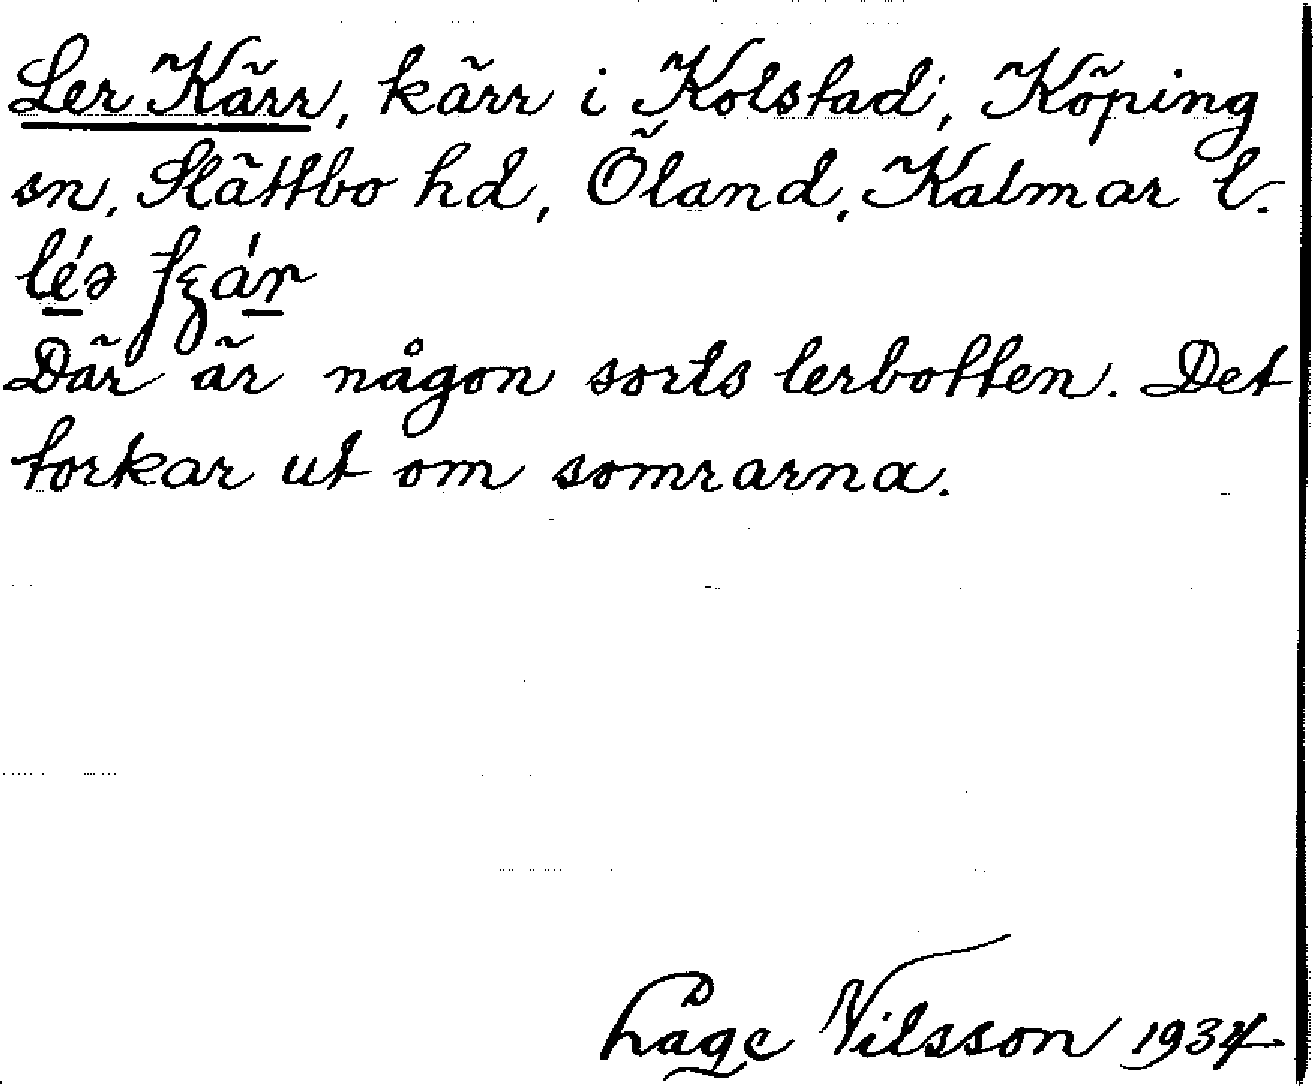 Ler Kärr, kärr i Kolstad, Köping
sn, Slättbo hd, Öland, Kalmar l.
Där är någon sorts lerbotten. Det
torkar ut om somrarna.
Låge Nilsson 1934